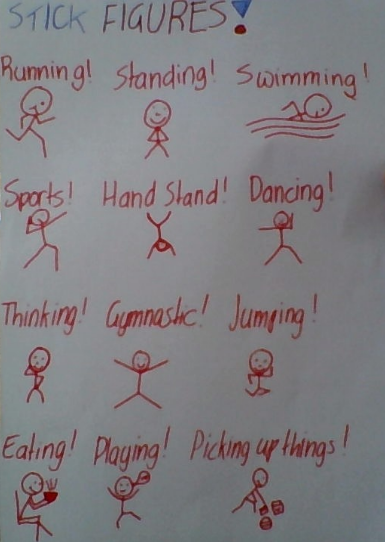 STICK FIGURES!
Running! Standing! Swimming!
Sports! Hand Stand! Dancing!
Thinking! Gymnastic! Jumping!
Eating! Playing! Picking up things!